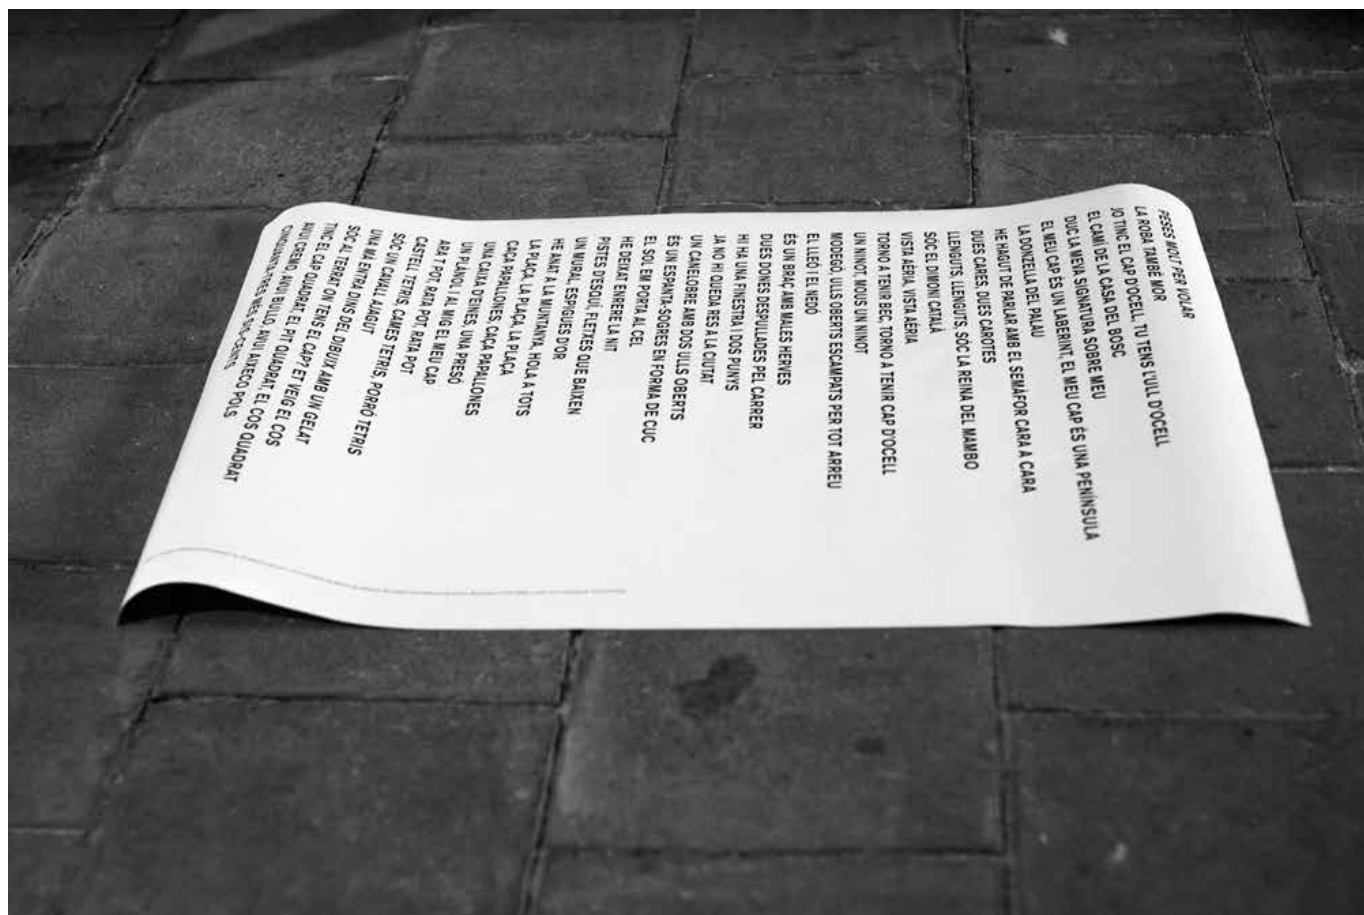 PESES MOLT PER VOLAR
LA ROBA TAMBÉ MOR
JO TINC EL CAP D'OCELL, TU TENS L'ULL D'OCELL
EL CAMÍ DE LA CASA DEL BOSC
DUC LA MEVA SIGNATURA SOBRE MEU
EL MEU CAP ÉS UN LABERINT, EL MEU CAP ÉS UNA PENÍNSULA
LA DONZELLA DEL PALAU
HE HAGUT DE PARLAR AMB EL SEMÀFOR CARA A CARA
DUES CARES, DUES CAROTES
LLENGUTS, LLENGUTS, SÓC LA REINA DEL MAMBO
SÓC EL DIMONI CATALÀ
VISTA AÈRIA, VISTA AÈRIA
TORNO A TENIR BEC, TORNO A TENIR CAP D'OCELL
UN NINOT, MOUS UN NINOT
MIODEGÓ, ULLS OBERTS ESCAMPATS PER TOT ARREU
EL LLEÓ I EL NEDÓ
ÉS UN BRAÇ AMB MALES HERVES
DUES DONES DESPULLADES PEL CARRER
HI HA UNA FINESTRA I DOS PUNYS
JA NO HI QUEDA RES A LA CIUTAT
UN CANELOBRE AMB DOS ULLS OBERTS
ÉS UN ESPANTA-SOGRES EN FORMA DE CUC
EL SOL EM PORTA AL CEL
HE DEIXAT ENRERE LA NIT
PISTES D'ESQUÍ, FLETXES QUE BAIXEN
UN MURAL, ESPIGUES D'OR
HE ANAT A LA MUNTANYA, HOLA A TOTS
LA PLAÇA, LA PLAÇA, LA PLAÇA
CAÇA PAPALLONES, CAÇA PAPALLONES
UNA CAIXA D'EINES, UNA PRESÓ
UN PLÀNOL I AL MIG EL MEU CAP
ARA T POT, RATA POT, RATA POT
CASTELL TETRIS, CAMES TETRIS, PORRÓ TETRIS
SÓC UN CAVALL AJAGUT
UNA MÀ ENTRA DINS DEL DIBUIX AMB UN GELAT
SÓC AL TERRAT ON TENS EL CAP I ET VEIG EL COS
TINC EL CAP QUADRAT, EL PIT QUADRAT, EL COS QUADRAT
AVUI CREMO, AVUI BULLO, AVUI AIXECO POLS
CINQUANTA-TRES MÉS